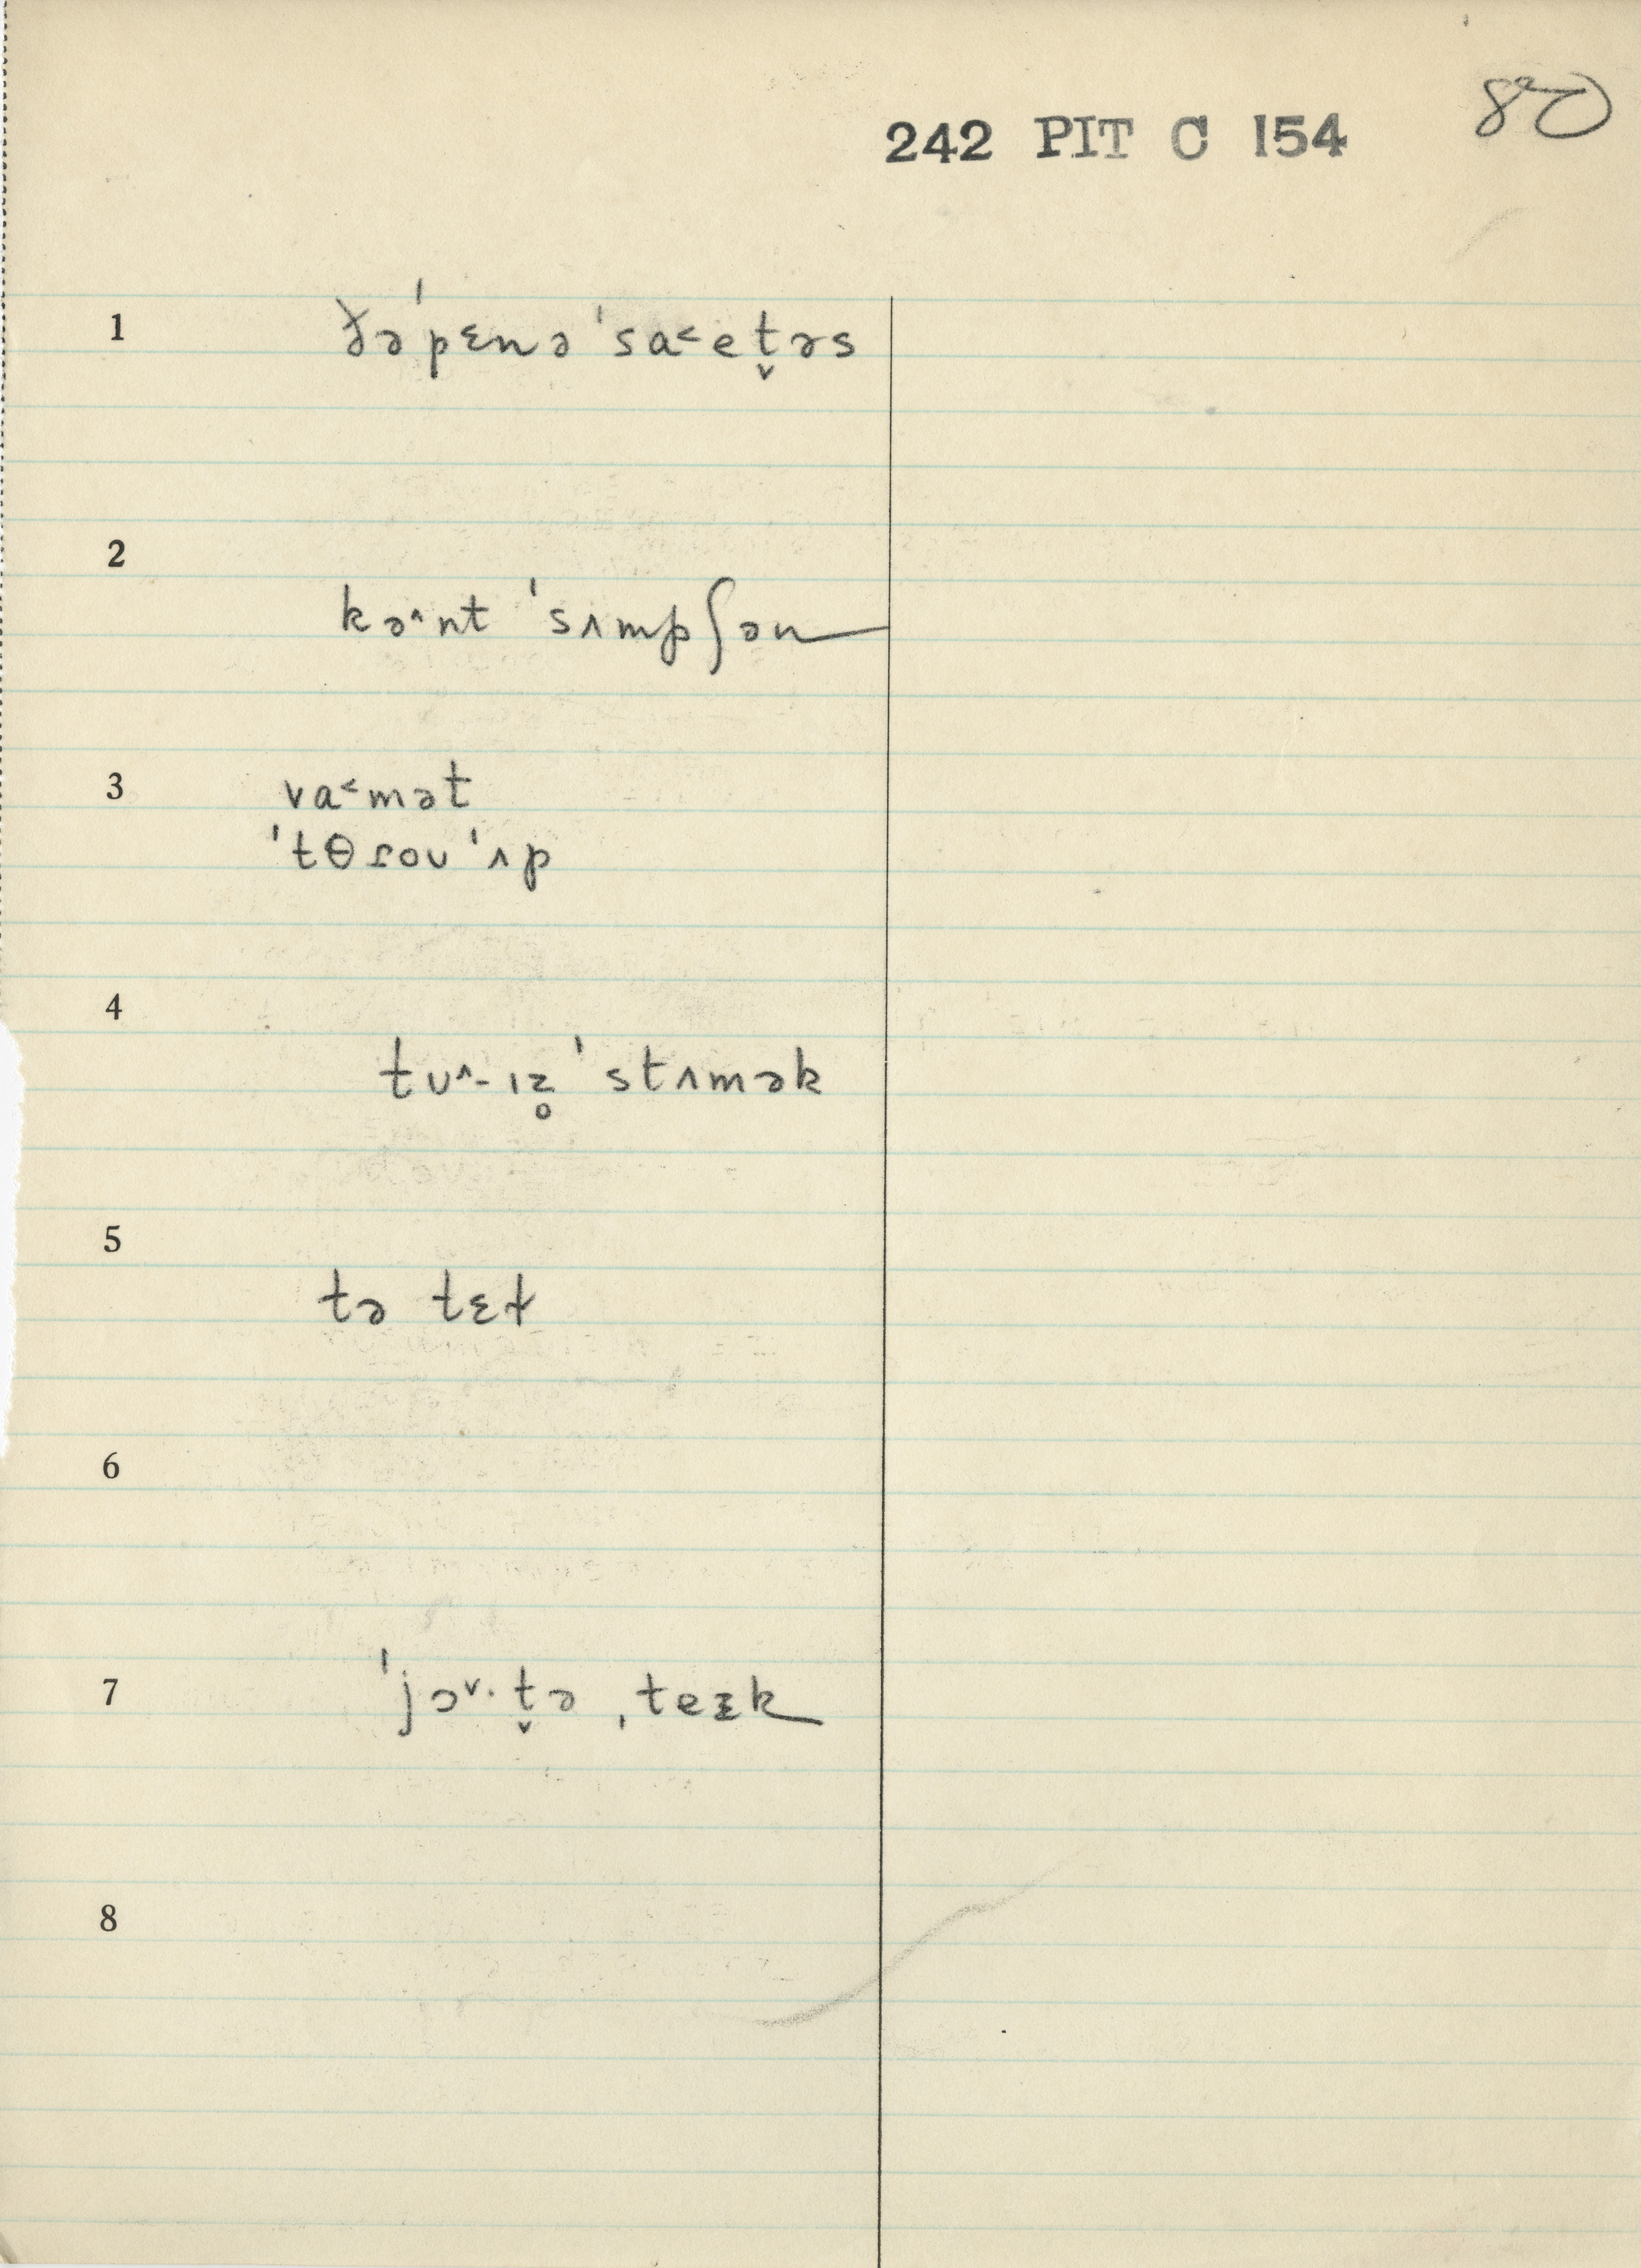 80
242 PIT C 154
1 ðəˈpɛnəˈsa˂et̬əs
2 kə˄nt ˈsʌmpʃən
3 va˂mət
ˈtθɾoʊˈʌp
4 tʊ˄-ɪz̥ ˈstʌmək
5 tə tɛt
6
7 ˈjɔ˅·t̬ə ˌteɪk
8